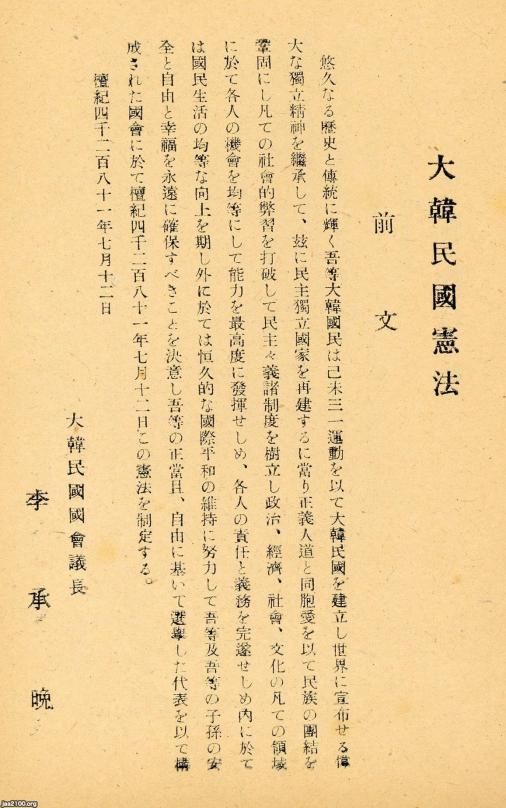 大韓民國憲法
前文
悠久なる歴史と傳統に輝く吾等大韓國民は己未三一運動を以て大韓民國を建立し世界に宣布せる偉
大な獨立精神を繼承して、玆に民主獨立國家を再建するに當り正義人道と同胞愛を以て民族の團結を
鞏固にし凡ての社會的弊習を打破して民主々義諸制度を樹立し政治、經濟、社會、文化の凡ての領域
に於て各人の機會を均等にして能力を最高度に發揮せしめ、各人の責任と義務を完遂せしめ內に於て
は國民生活の均等な向上を期し外に於ては恒久的な國際平和の維持に努力して吾等及吾等の子孫の安
全と自由と幸福を永遠に確保すべきことを決意し吾等の正當且、自由に基いて選擧した代表を以て構
成された國會に於て檀紀四千二百八十一年七月十二日この憲法を制定する。
檀紀四千二百八十一年七月十二日
大韓民國國會議長
李承晩
jaa2100.org